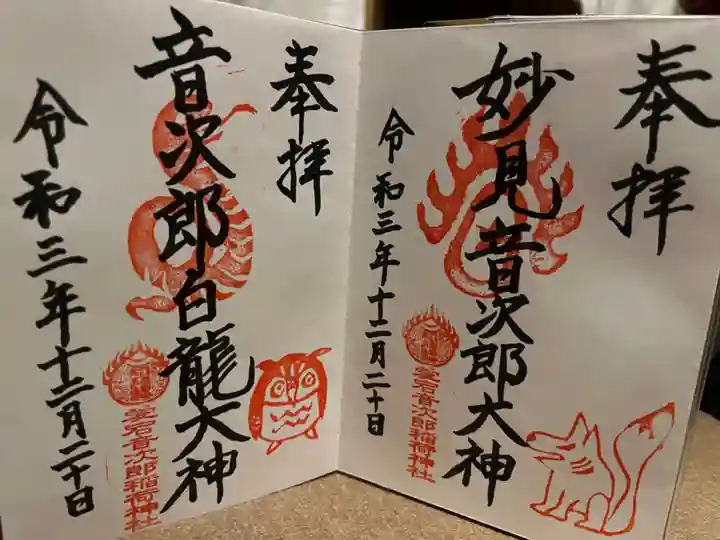 奉拝
妙見音次郎大神
令和三年十二月二十日
愛宕音次郎稲荷神社
奉拝
音次郎白龍大神
令和三年十二月二十日
愛宕音次郎稲荷神社